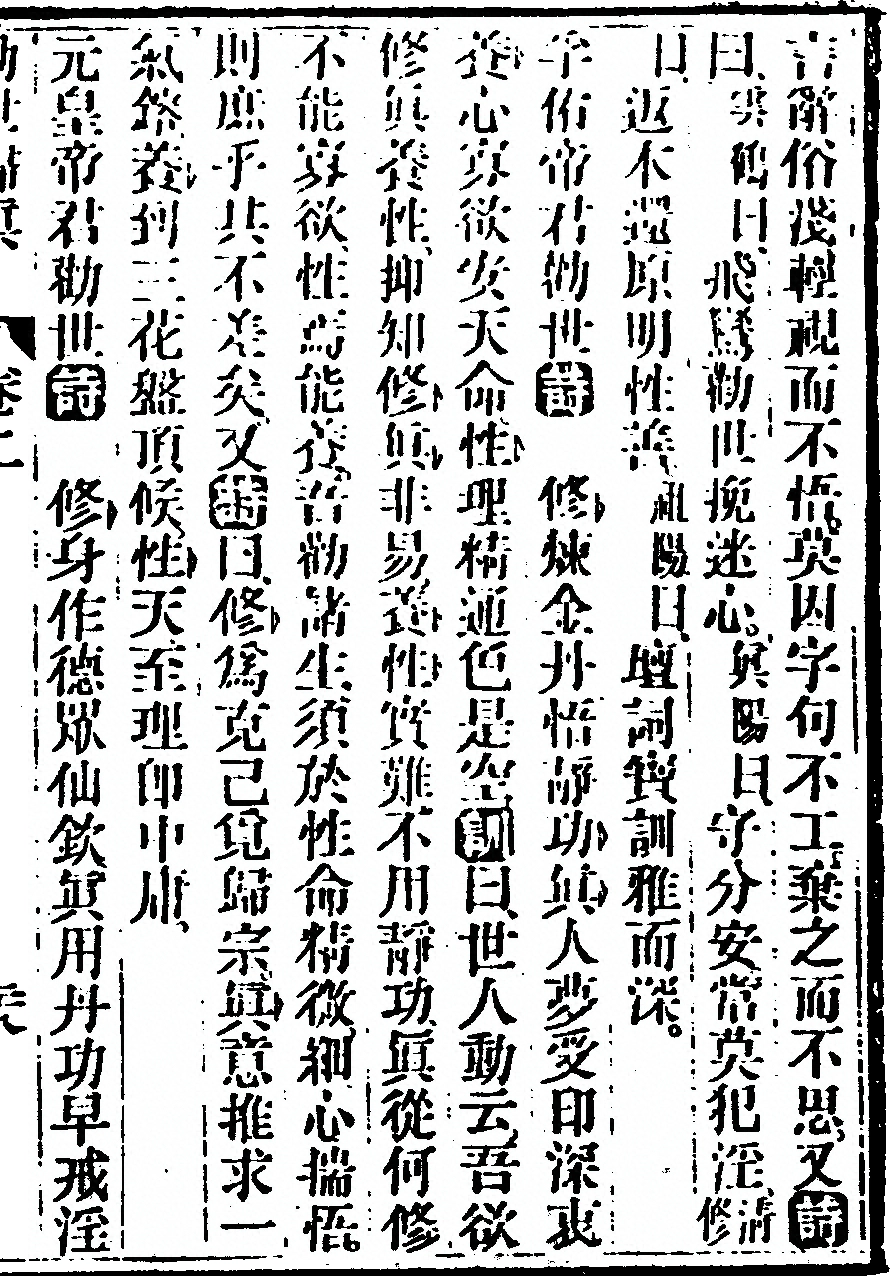 言辭俗淺輕視而不悟莫因字句不工棄之而不思又詩
曰雲鶴曰飛鸞勸世挽迷心眞陽曰守分安常莫犯淫清修
曰返本還原明性善純陽曰壇詞寶訓雅而深
孚佑帝君勸世詩 修煉金丹悟靜功眞人夢受印深衷
養心寡欲安天命性理精通色是空訓曰世人動云吾欲
修眞養性抑知修眞非易養性實難不用靜功眞從何修
不能寡欲性焉能養吾勸諸生須於性命精微細心揣悟
則庶乎其不差矣又詩曰修爲克己覓歸宗眞意推求一
氣鎔養到三花盤頂候性天至理卽中庸
元皇帝君勸世詩 修身作德眾仙欽眞用丹功早戒淫
卷二